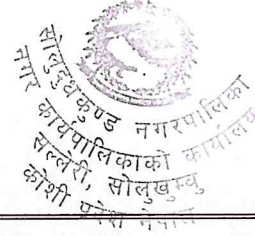 सोलुदुधकुण्ड नगरपालिका
नगर कार्यपालिकाको कार्यालय
सल्लेरी, सोलुखुम्बु
कोशी प्रदेश नेपाल